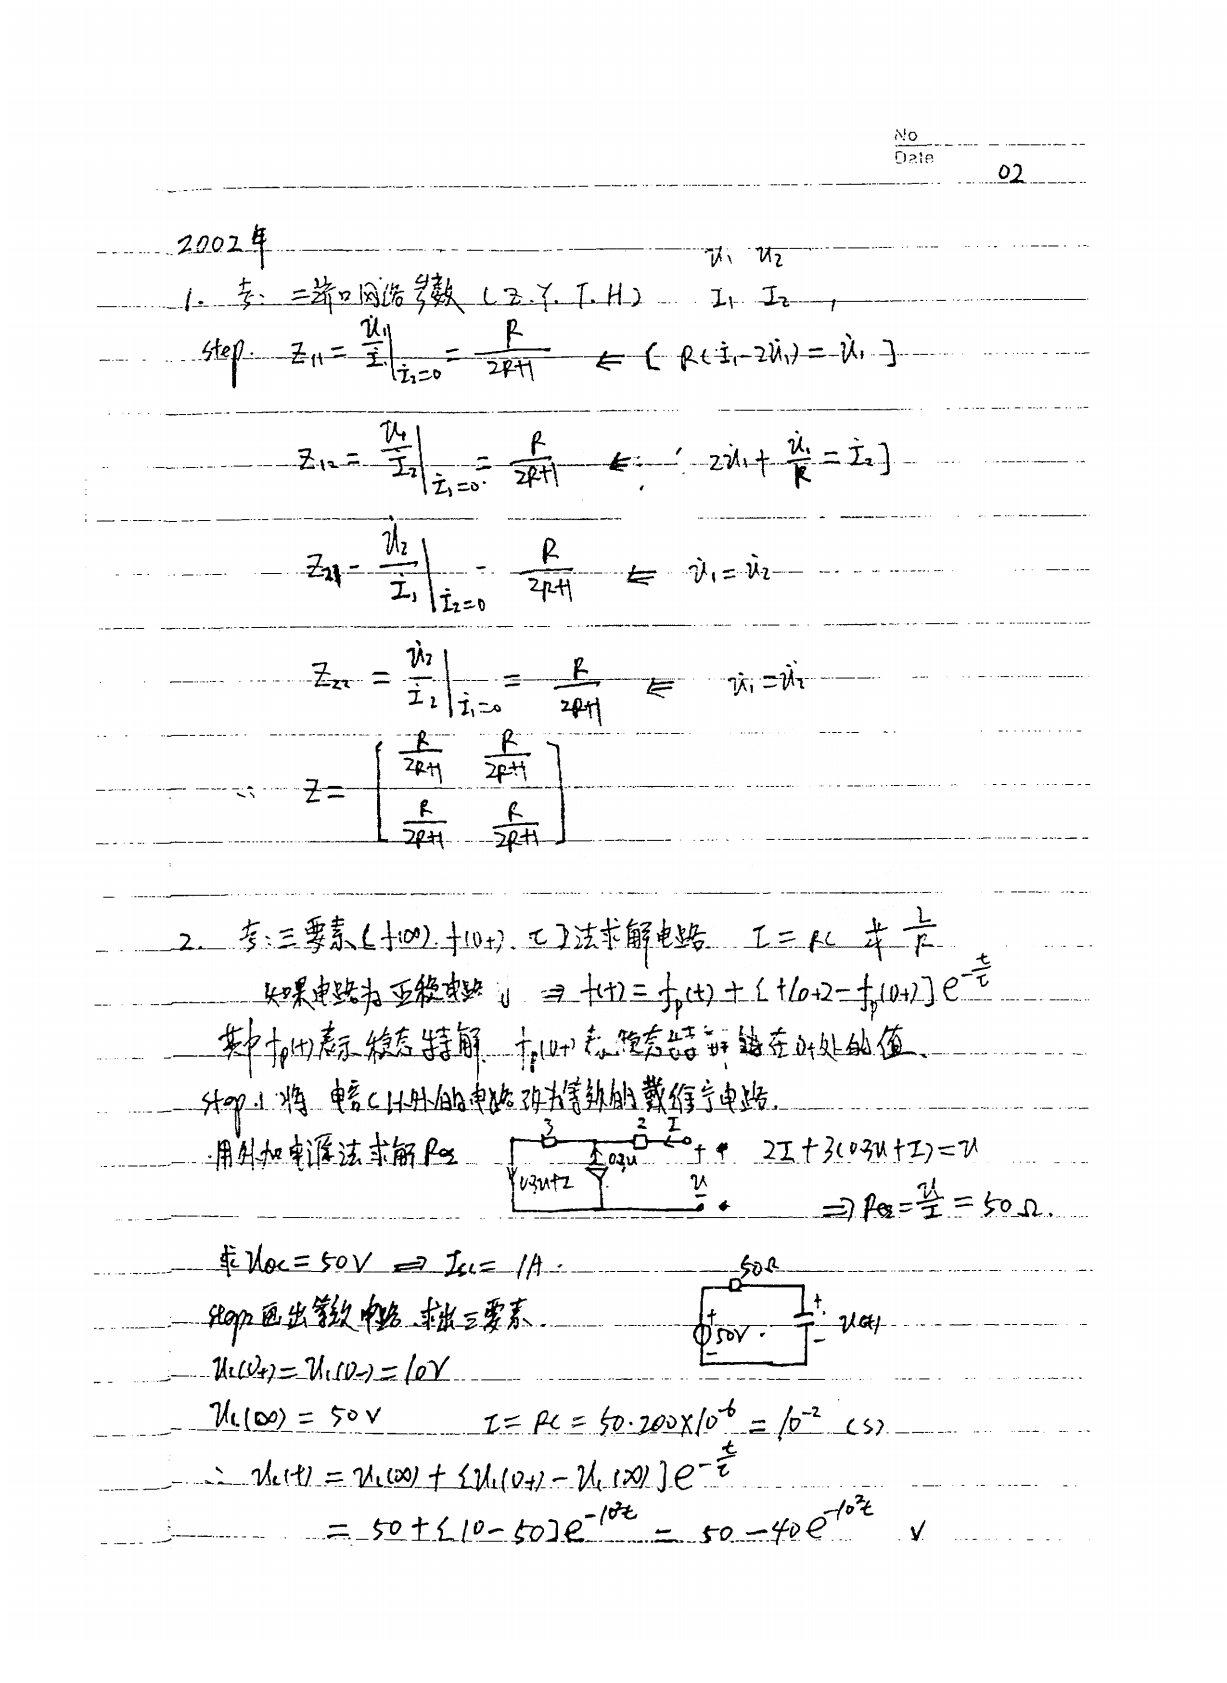 No
Date
02
2002年
u̇₁ u̇₂
1. 考: 二端口网络参数 (Z.Y.T.H) İ₁ İ₂,
step. Z₁₁ = u̇₁/İ₁ |İ₂=0 = R/(2R+1) ⇐ [ R(İ₁-2u̇₁) = u̇₁ ]
Z₁₂ = u̇₁/İ₂ |İ₁=0 = R/(2R+1) ⇐ 2u̇₁ + u̇₁/R = İ₂ ]
Z₂₁ = u̇₂/İ₁ |İ₂=0 = R/(2R+1) ⇐ u̇₁ = u̇₂
Z₂₂ = u̇₂/İ₂ |İ₁=0 = R/(2R+1) ⇐ u̇₁ = u̇₂
∴ Z = [ R/(2R+1) R/(2R+1)
R/(2R+1) R/(2R+1) ]
2. 考: 三要素 [f(∞). f(0+). τ] 法求解电路 τ = RC 或 L/R
如果电路为正稳电路 ⇒ f(t) = fp(t) + [f(0+) - fp(0+)] e^(-t/τ)
其中fp(t)表示稳态特解 fp(0+)表示稳态特解在0+处的值.
step.1 将电容C以外的电路改为等效的戴维宁电路.
用外加电源法求解Req 3 2 I + 0.3u u 0.3u+I - 2I+3(0.3u+I)=u
⇒ Req = u/I = 50Ω.
求uoc = 50V ⇒ Isc = 1A.
50Ω
step2 画出等效电路 求出三要素. + 50V - + uc(t) -
uc(0+) = uc(0-) = 10V
uc(∞) = 50V τ = RC = 50·200×10⁻⁶ = 10⁻² (s)
∴ uc(t) = uc(∞) + [uc(0+) - uc(∞)] e^(-t/τ)
= 50 + [10-50] e^(-10²t) = 50 - 40e^(-10²t) V